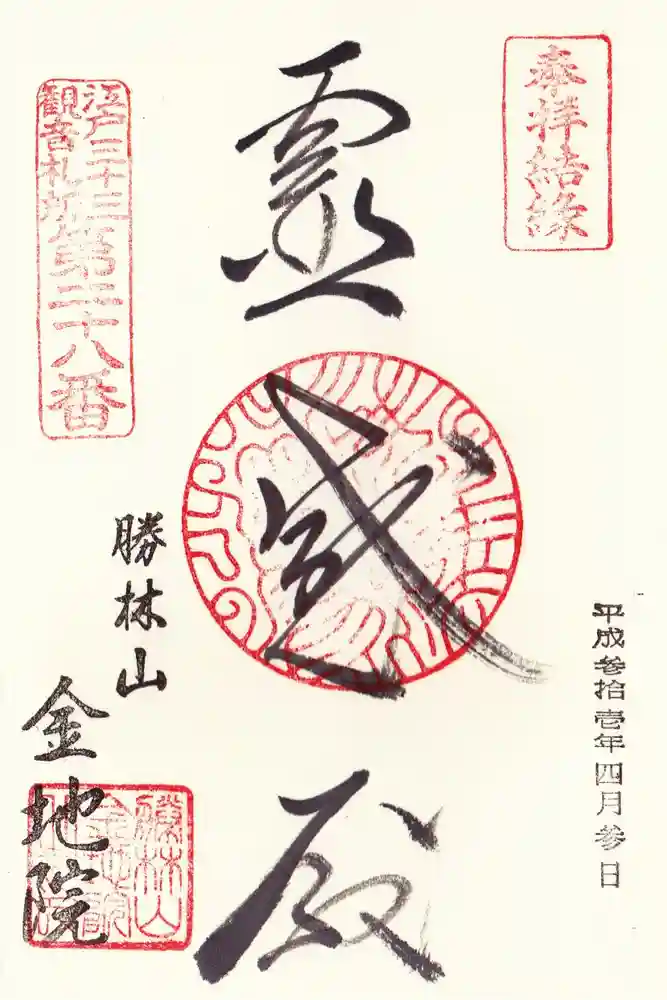 奉拝結縁
平成参拾壱年四月参日
霊感殿
江戸三十三
観音札所
第二十八番
勝林山
金地院
勝林山
金地院